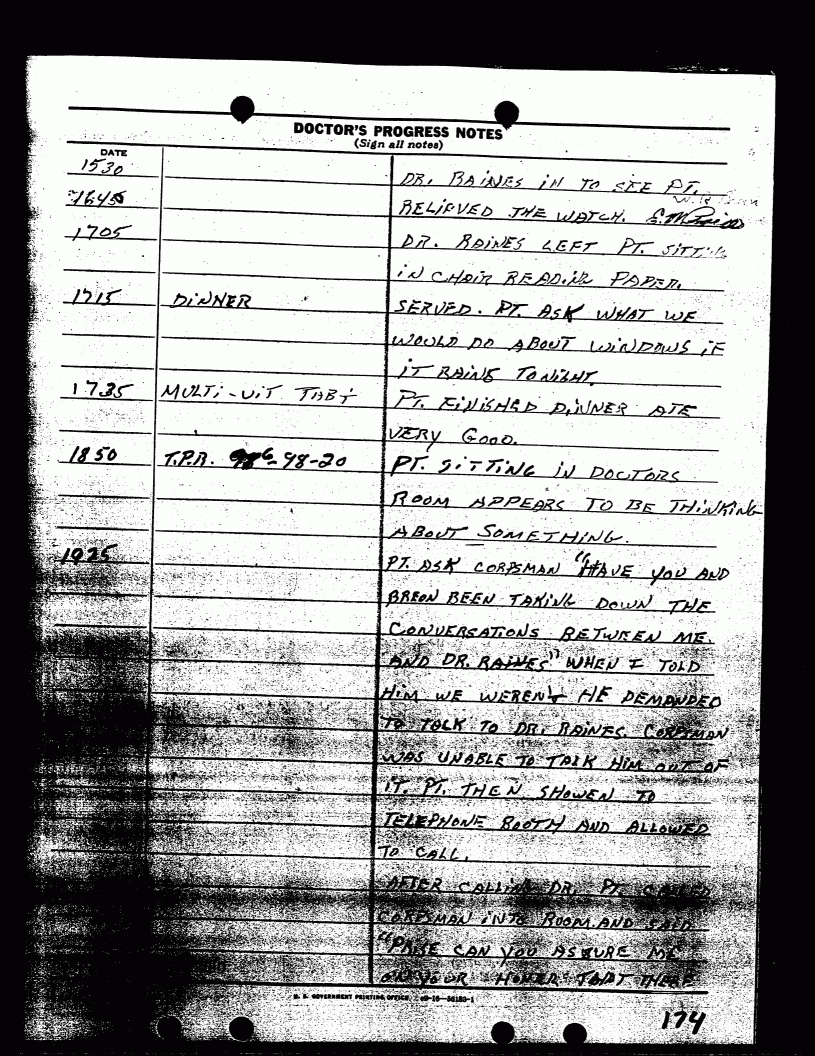 DOCTOR'S PROGRESS NOTES
(Sign all notes)
DATE
1530 DR. RAINES IN TO SEE PT.
1645 RELIEVED THE WATCH.
1705 DR. RAINES LEFT PT. SITTING
IN CHAIR READING PAPER.
1715 DINNER SERVED. PT. ASK WHAT WE
WOULD DO ABOUT WINDOWS IF
IT RAINS TONIGHT.
1735 MULTI-VIT TAB † PT. FINISHED DINNER ATE
VERY GOOD.
1850 T.P.R. 98-20 PT. SITTING IN DOCTORS
ROOM APPEARS TO BE THINKING
ABOUT SOMETHING.
1925 PT. ASK CORPSMAN "HAVE YOU AND
BREON BEEN TAKING DOWN THE
CONVERSATIONS BETWEEN ME.
AND DR. RAINES" WHEN I TOLD
HIM WE WERENT HE DEMANDED
TO TALK TO DR. RAINES. CORPSMAN
WAS UNABLE TO TALK HIM OUT OF
IT. PT. THEN SHOWEN TO
TELEPHONE BOOTH AND ALLOWED
TO CALL.
AFTER CALLING DR. PT. CALLED
CORPSMAN INTO ROOM AND SAID
"PRISE CAN YOU ASSURE ME
ON YOUR HONER THAT THERE
U. S. GOVERNMENT PRINTING OFFICE
174